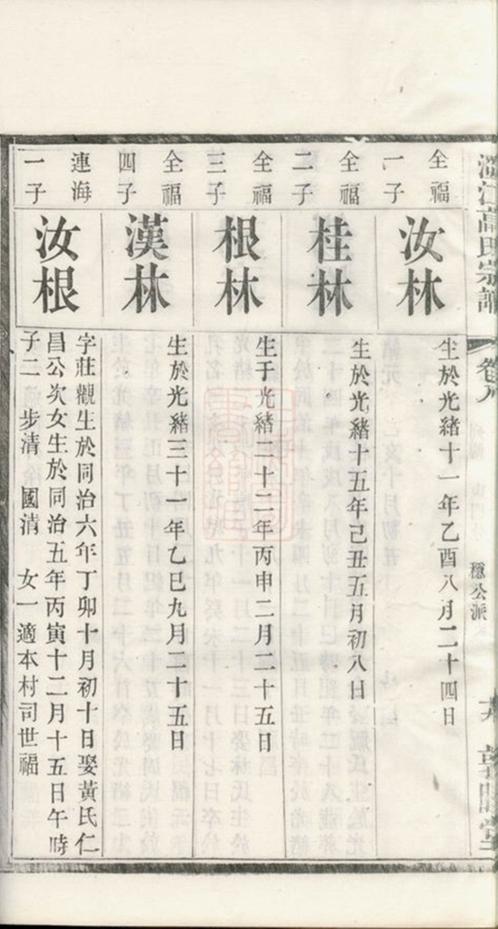 高氏宗譜
卷八
穩公派
全福一子
汝林
生於光緒十一年乙酉八月二十四日
全福二子
桂林
生於光緒十五年己丑五月初八日
全福三子
根林
生于光緒二十二年丙申二月二十五日
全福四子
漢林
生於光緒三十一年乙巳九月二十五日
連海一子
汝根
字莊觀生於同治六年丁卯十月初十日娶黃氏仁
昌公次女生於同治五年丙寅十二月十五日午時
子二 步清 國清 女一適本村司世福